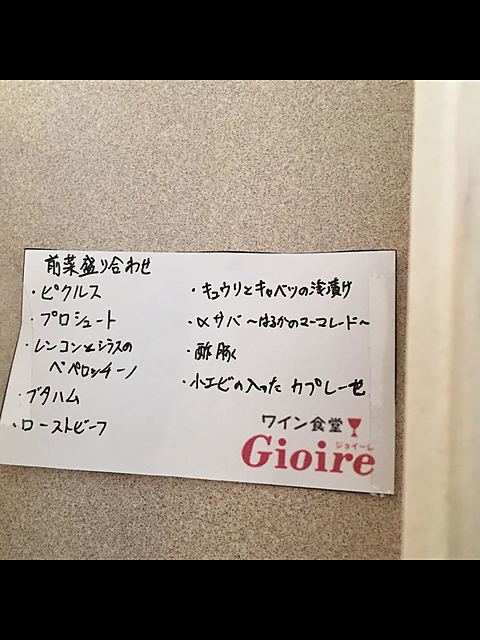 前菜盛り合わせ
・ピクルス
・プロシュート
・レンコンとシラスの
ペペロンチーノ
・ブタハム
・ローストビーフ
・キュウリとキャベツの浅漬け
・〆サバ 〜はるかのマーマレード〜
・酢豚
・小エビの入った カプレーゼ
ワイン食堂
ジョイーレ
Gioire